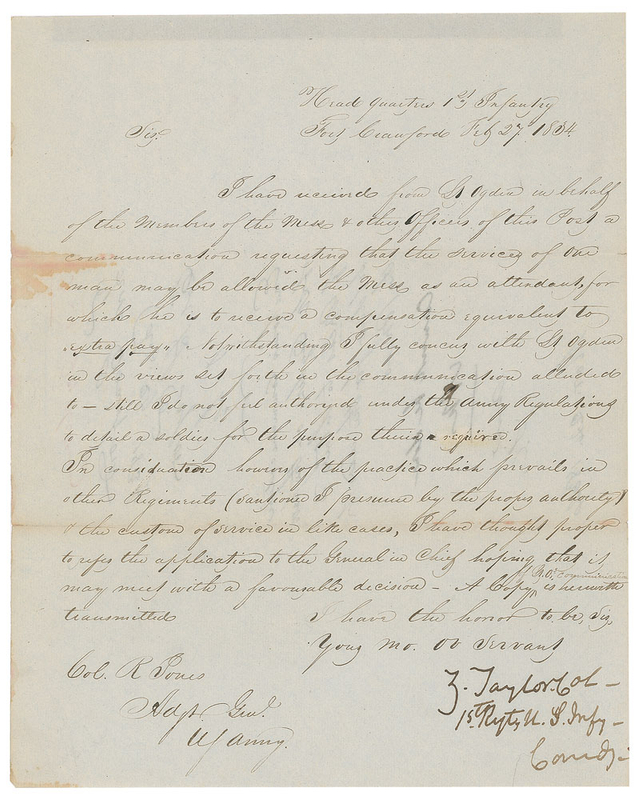 Head Quarters 1st Infantry
Fort Crawford Feby 27. 1834.
Sir,
I have received from Lt Ogden in behalf
of the Members of the Mess & other Officers of this Post a
communication requesting that the services of one
man may be allowed the Mess as an attendant, for
which he is to receive a compensation equivalent to
"extra pay". Notwithstanding I fully concur with Lt Ogden
in the views set forth in the communication alluded
to — still I do not feel authorized under the Army Regulations
to detail a soldier for the purpose therein required.
In consideration however of the practice which prevails in
other Regiments (Sanctioned I presume by the proper authority)
& the custom of service in like cases, I have thought proper
to refer the application to the General in Chief hoping that it
may meet with a favourable decision — A Copy of Lt O's communication is herewith
transmitted
I have the honor to be, Sir,
Your Mo. Ob Servant
Z. Taylor. Col —
1st Regt, U. S. Infy —
Comdg —
Col. R Jones
Adjt. Genl.
US Army.